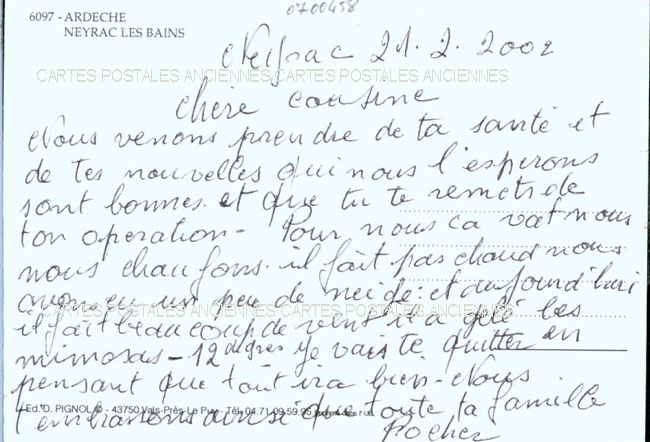 0700458
6097 - ARDECHE
NEYRAC LES BAINS
Neyrac 21.2.2002
CARTES POSTALES ANCIENNES CARTES POSTALES ANCIENNES
chère cousine
Nous venons prendre de ta santé et
de tes nouvelles qui nous l'esperons
sont bonnes. et que tu te remets de
ton operation - Pour nous ca vat nous
nous chaufons. il fait pas chaud nous
avons eu un peu de neide. et aujourd'hui
CARTES POSTALES ANCIENNES CARTES POSTALES ANCIENNES
il fait beaucoup de vent il a gelé les
mimosas - 12 degres Je vais te quitter en
pensant que tout ira bien - Nous
Ed. D. PIGNOL © - 43750 Vals-Près-Le Puy - Tél. 04.71.09.59.95
t'embrassons ainsi que toute ta famille
Rocher